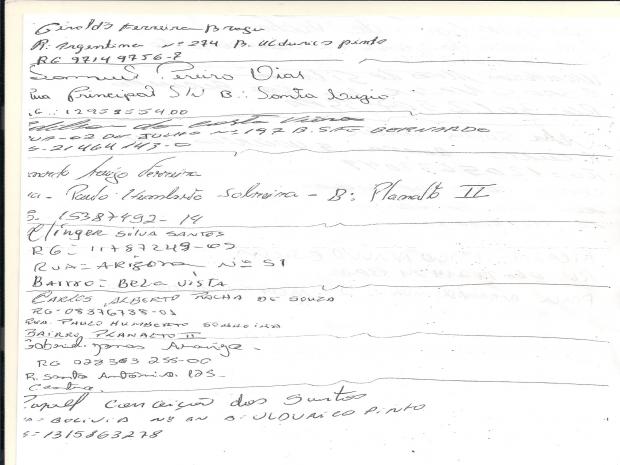 Ferreira Braga
R. Argentina nº 274 B. Uldurico Pinto
RG 97149756-8
Pereira Dias
Rua Principal S/N B.: Santa Luzia
G.: 1295855900
da Costa Viana
RUA-02 DE JULHO Nº 197 B. SÃO BERNARDO
G-21464143-0
Araújo Ferreira
Paulo Humberto Sobreira - B: Planalto II
G. 15387492-14
SILVA SANTOS
RG= 11787249-07
RUA= ARIZONA Nº 51
BAIRRO= BELA VISTA
CARLOS ALBERTO ROCHA DE SOUZA
RG-08376738-01
RUA. PAULO HUMBERTO
BAIRRO, PLANALTO II
Gabriel
RG 023383255-00
R. Santo Antônio. 125-
Centro.
Conceição dos Santos
BOLIVIA Nº SN B: ULDURICO PINTO
G=1315863278